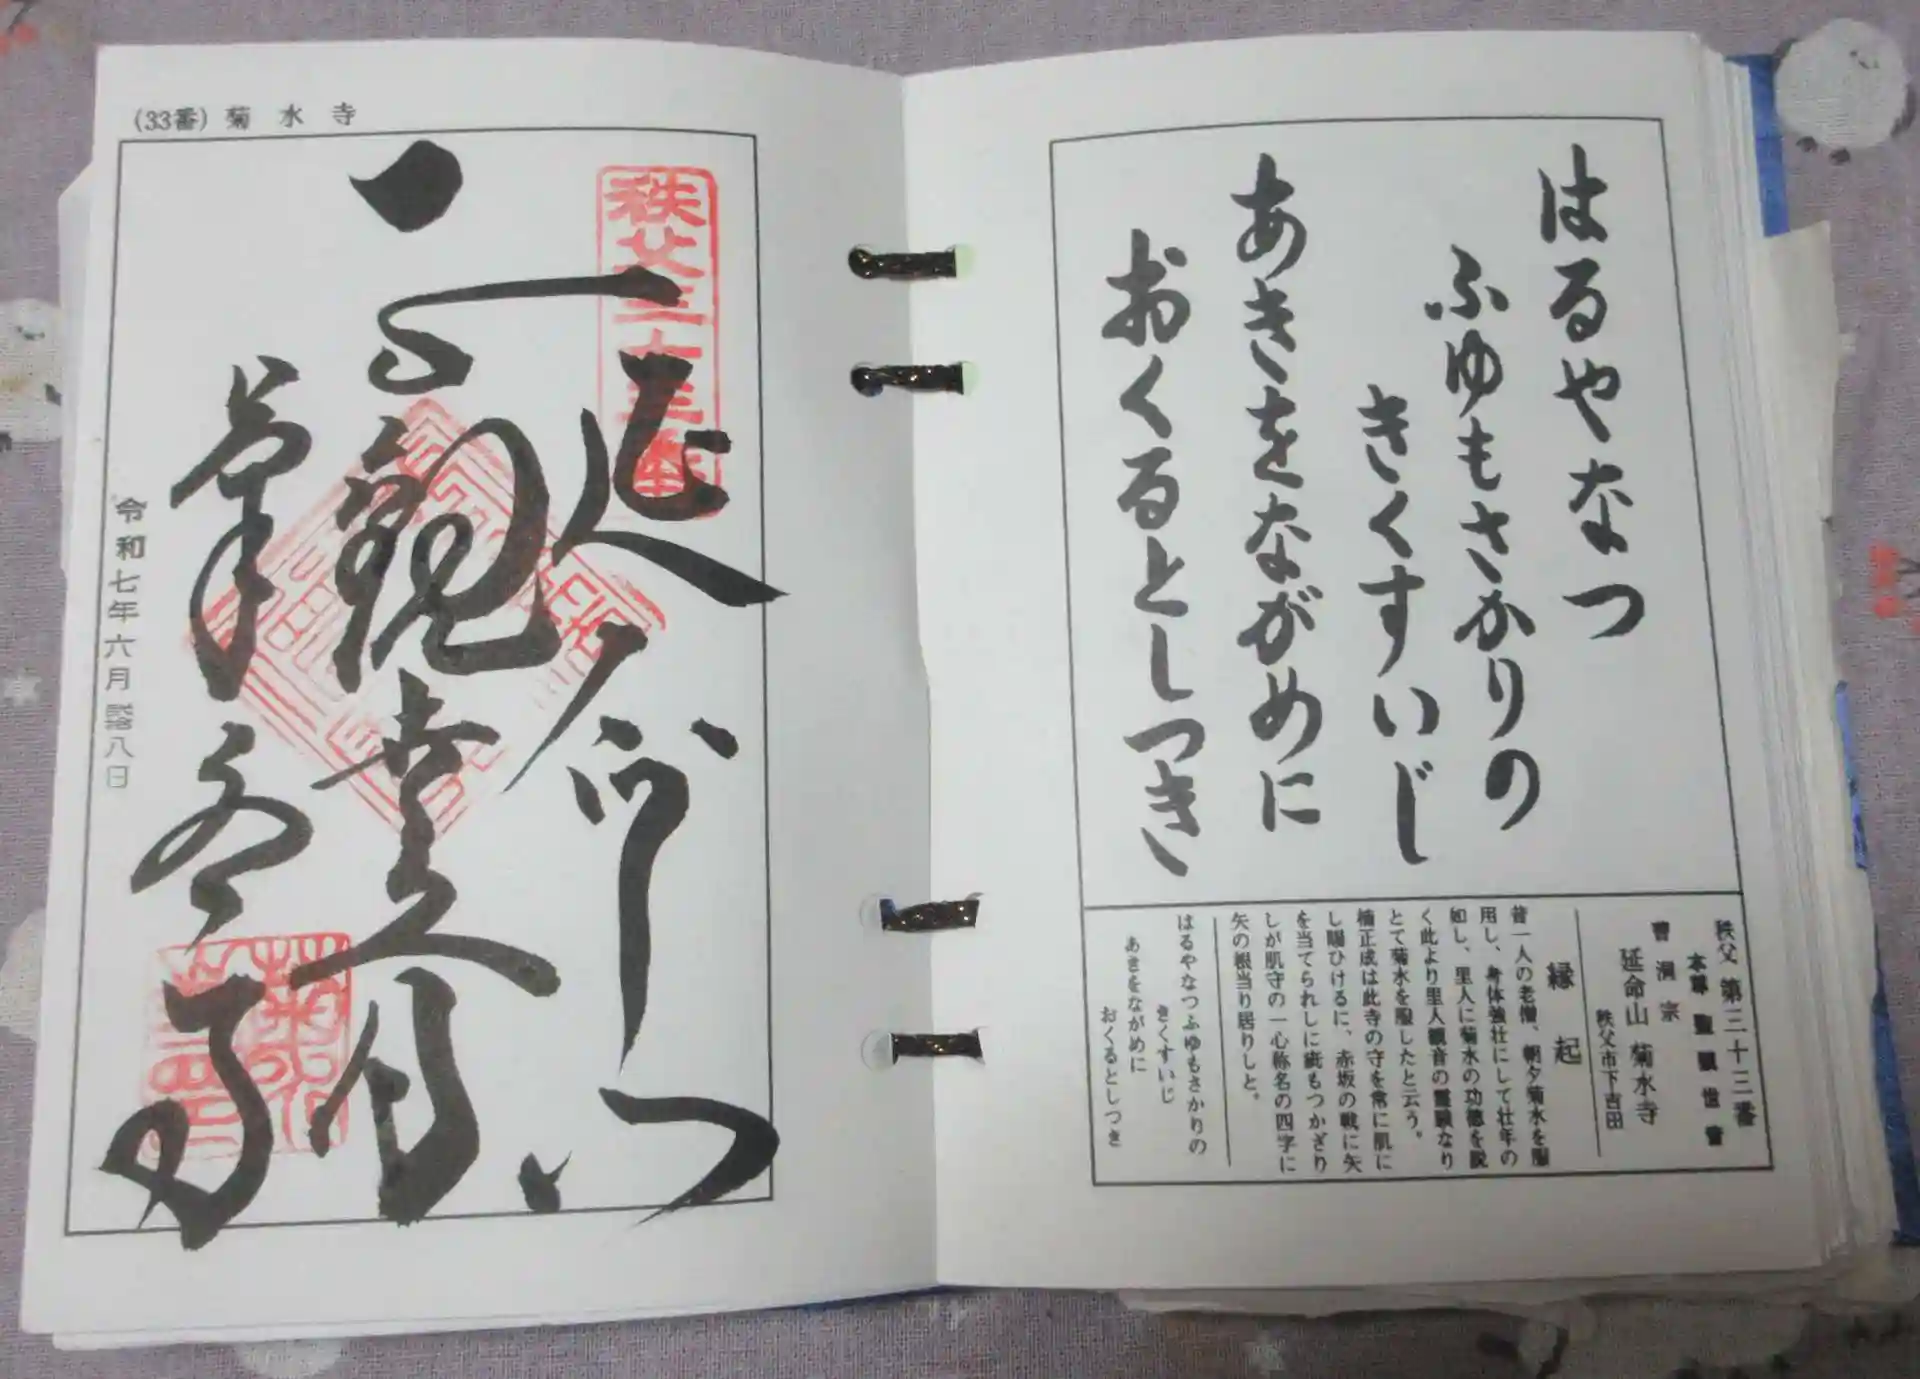 はるやなつ
ふゆもさかりの
きくすいじ
あきをながめに
おくるとしつき
秩父 第三十三番
本尊 聖観世音
曹洞宗
延命山 菊水寺
秩父市下吉田
縁起
昔一人の老僧、朝夕菊水を服
用し、身体強壮にして壮年の
如し、里人に菊水の功徳を説
く此より里人観音の霊験なり
とて菊水を服したと云う。
楠正成は此寺の守を常に肌に
し賜ひけるに、赤坂の戦に矢
を当てられしに疵もつかざり
しが肌守の一心称名の四字に
矢の根当り居りしと。
はるやなつふゆもさかりの
きくすいじ
あきをながめに
おくるとしつき
(33番) 菊水寺
秩父三十三番
令和七年六月弐拾八日